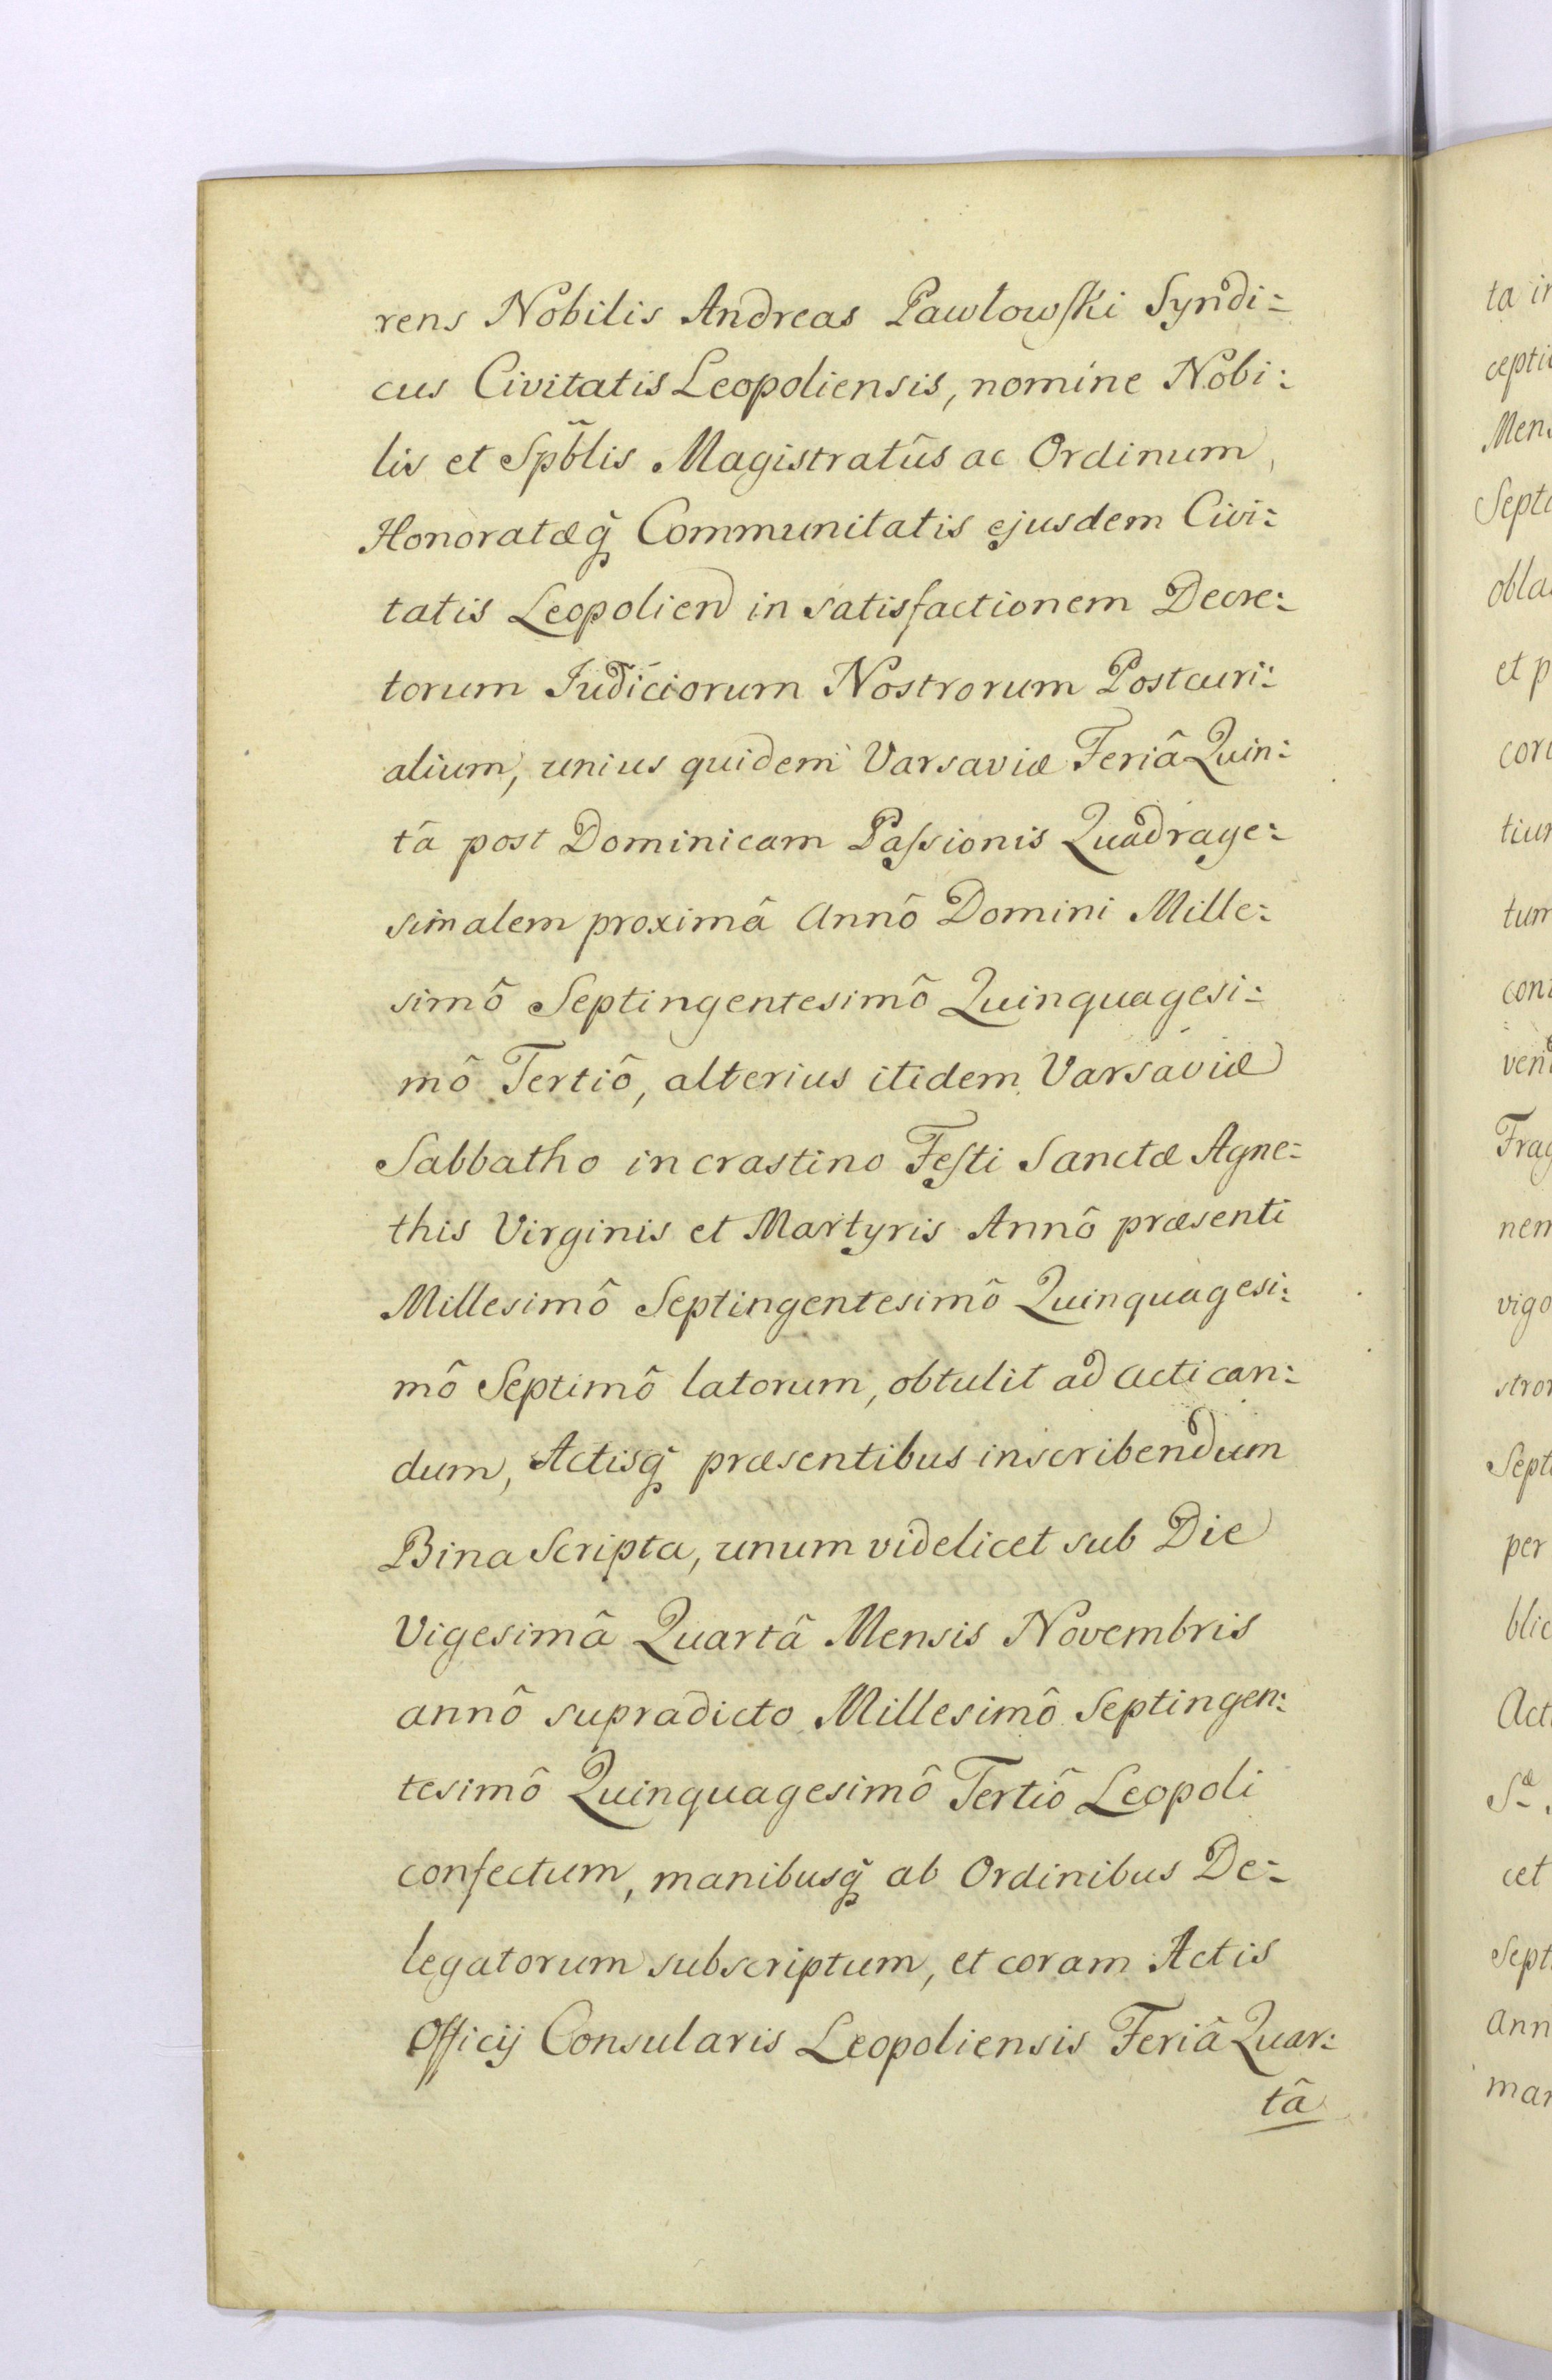 rens Nobilis Andreas Pawłowſki Syndi=
cus Civitatis Leopoliensis, nomine Nobi:
lis et Spb̃lis Magistratûs ac Ordinum,
Honoratæq̃ Communitatis ejusdem Civi:
tatis Leopolien in satisfactionem Decre:
torum Judiciorum Nostrorum Postcuri:
alium, unius quidem Varsaviæ Feriâ Quin:
tâ post Dominicam Paſsionis Quadrage:
simalem proximâ Annô Domini Mille:
simô Septingentesimô Quinquagesi=
mô Tertiô, alterius itidem Varsaviæ
Sabbatho in crastino Feſti Sanctæ Agne=
this Virginis et Martyris Annô præsenti
Millesimô Septingentesimô Quinquagesi:
mô Septimô latorum, obtulit ad actican:
dum, Actisq̃ præsentibus inscribendum
Bina Scripta, unum videlicet sub Die
Vigesimâ Quartâ Mensis Novembris
annô supradicto Millesimô Septingen:
tesimô Quinquagesimô Tertiô Leopoli
confectum, manibusq̃ ab Ordinibus De=
legatorum subscriptum, et coram Actis
Officij Consularis Leopoliensis Feriâ Quar:
tâ
ta
Men
Sept
et p
tum
ven
nem
vigo
Sept
per
Act
cet
Sept
ann